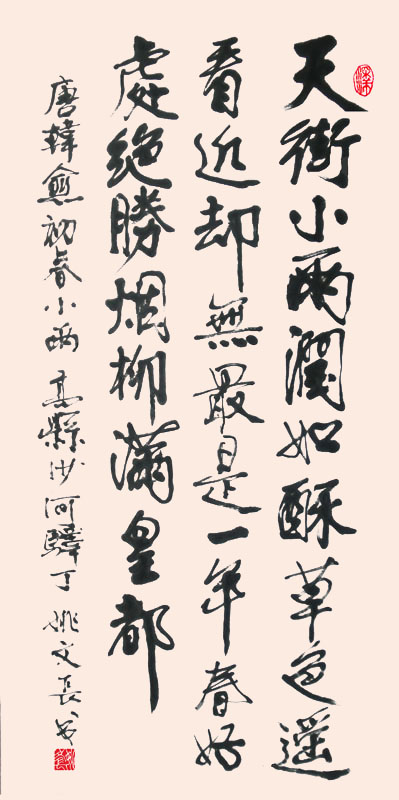 天街小雨潤如酥草色遥
看近却無最是一年春好
處絕勝烟柳滿皇都
唐韓愈初春小雨 高縣沙河驛丁 姚文長书